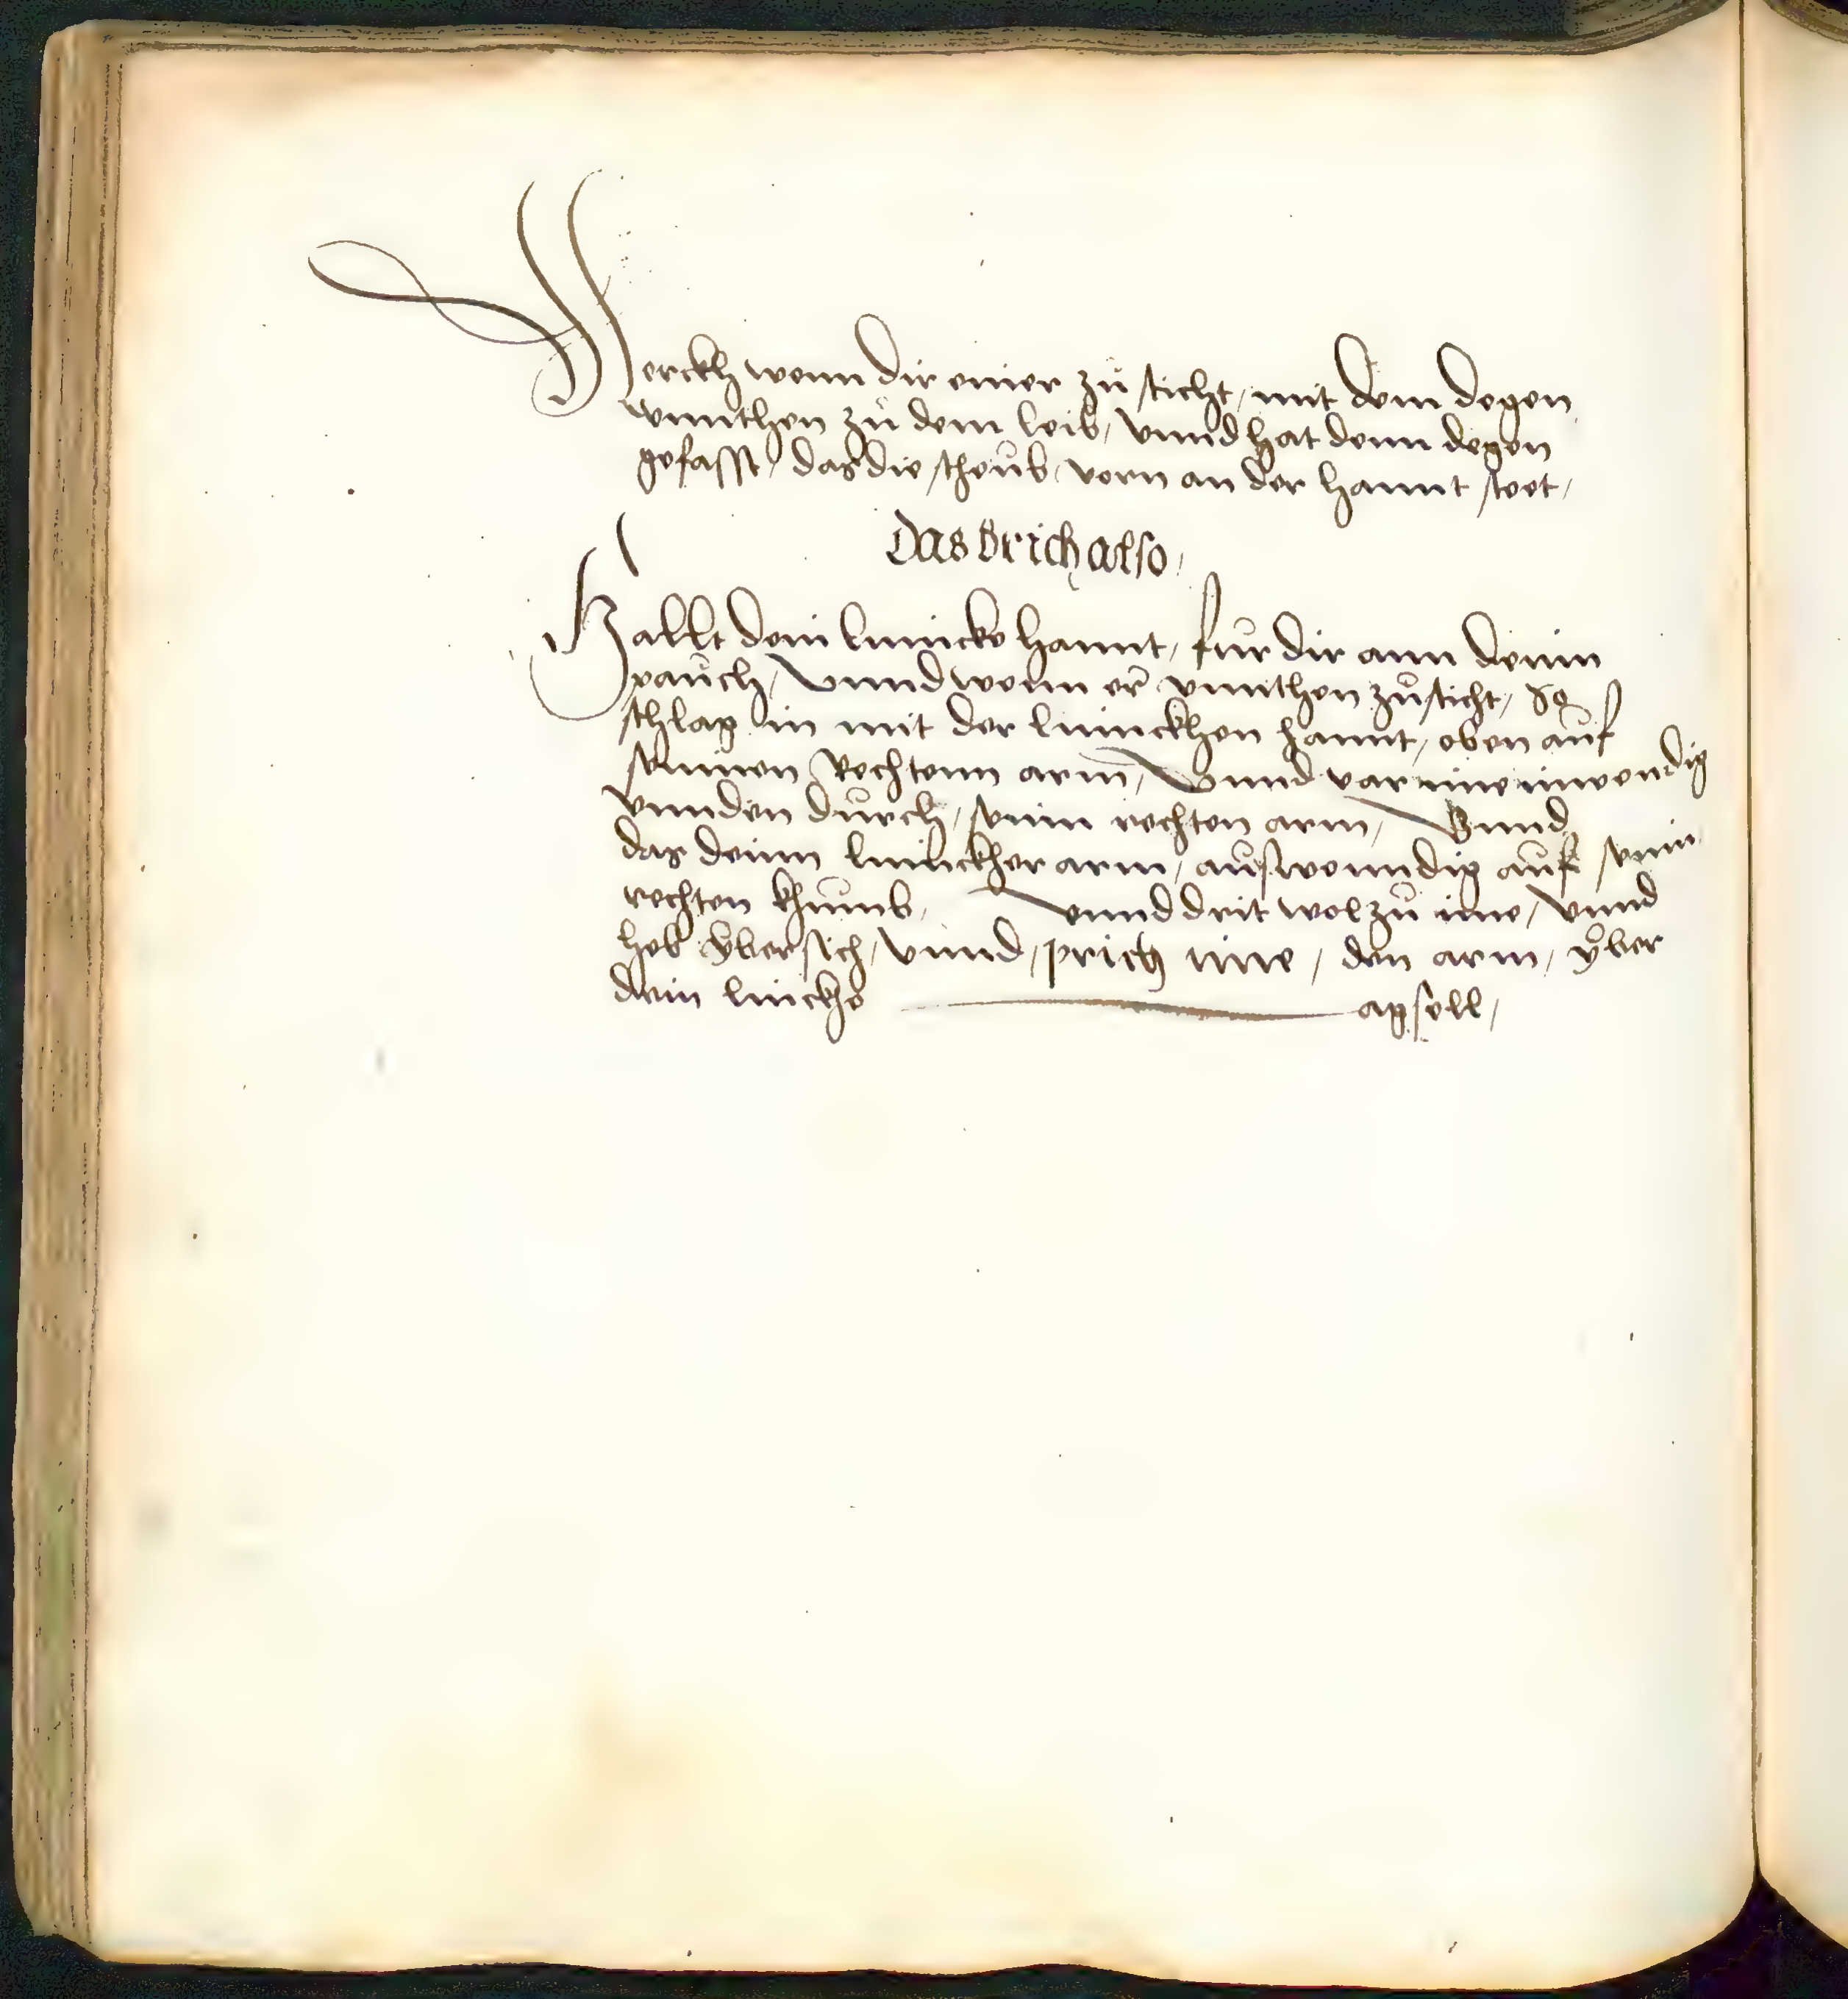 Merckh wenn dir einer zů sticht, mit dem degen
vnnthen zů dem leib, vnnd hat denn degen
gefasst, das die scheůb, vorn an der hannt steet,
Das brich also,
Hallt dein linncke hannt, für dir ann deinn
paůch, Vnnd wenn er vnnthen zůsticht, So
schlag in mit der linnckhen hannt, oben aůf
seinnen Rechtenn arm, Vnnd var ime innwendig
vnnden důrch, seinn rechten arm, Vnnd
das deinn linnckher arm, aůswenndig aůf seinn
rechten khumb, vnnd drit wol zů ime, vnnd
heb ÿber sich, vnnd, prich ime, den arm, ÿber
dein linckhe apsell,